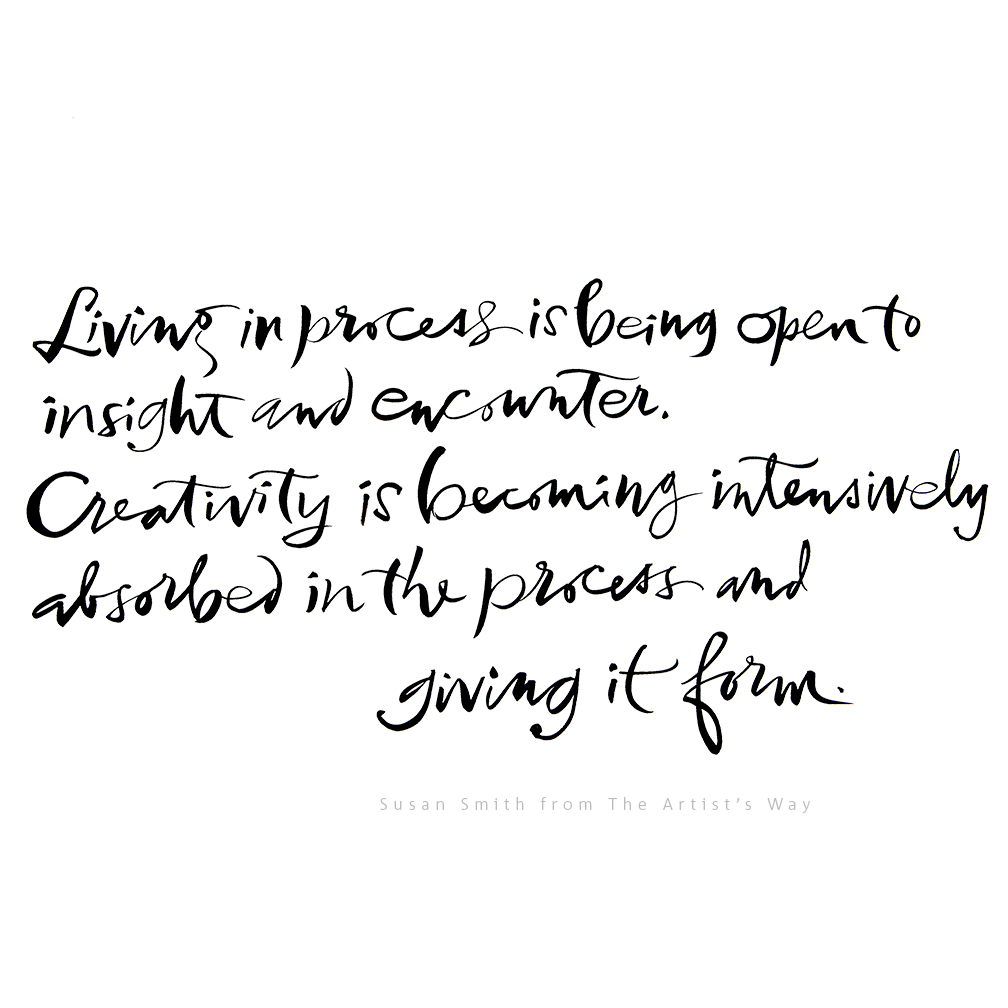 Living in process is being open to
insight and encounter.
Creativity is becoming intensively
absorbed in the process and
giving it form.
Susan Smith from The Artist's Way